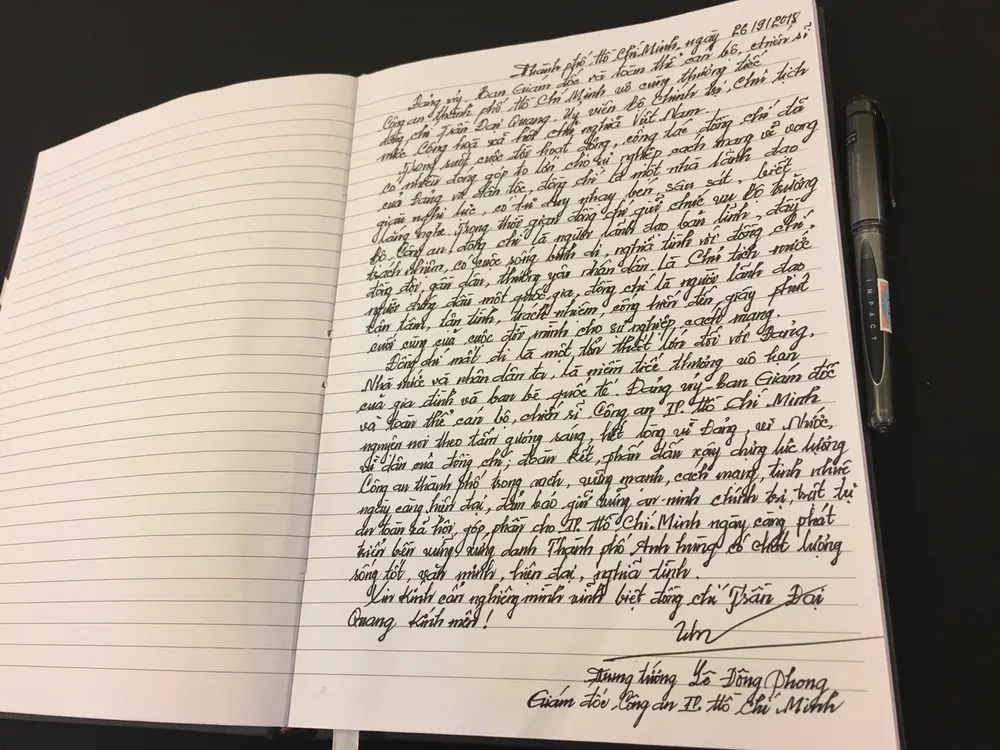 Thành phố Hồ Chí Minh, ngày 26/9/2018
Đảng ủy, Ban Giám đốc và toàn thể cán bộ, chiến sĩ
Công an thành phố Hồ Chí Minh vô cùng thương tiếc
đồng chí Trần Đại Quang, Ủy viên Bộ Chính trị, Chủ tịch
nước Cộng hoà xã hội chủ nghĩa Việt Nam.
Trong suốt cuộc đời hoạt động, công tác, đồng chí đã
có nhiều đóng góp to lớn cho sự nghiệp cách mạng vẻ vang
của Đảng và dân tộc, đồng chí là một nhà lãnh đạo
giàu nghị lực, có tư duy nhạy bén, sâu sát, biết
lắng nghe. Trong thời gian đồng chí giữ chức vụ Bộ trưởng
Bộ Công an, đồng chí là người lãnh đạo bản lĩnh, đầy
trách nhiệm, có cuộc sống bình dị, nghĩa tình với đồng chí,
đồng đội, gần dân, thương yêu nhân dân. Là Chủ tịch nước
người đứng đầu một quốc gia, đồng chí là người lãnh đạo
tận tâm, tận tình, trách nhiệm, cống hiến đến giây phút
cuối cùng của cuộc đời mình cho sự nghiệp cách mạng.
Đồng chí mất đi là một tổn thất lớn đối với Đảng,
Nhà nước và nhân dân ta, là niềm tiếc thương vô hạn
của gia đình và bạn bè quốc tế. Đảng ủy - Ban Giám đốc
và toàn thể cán bộ, chiến sĩ Công an TP. Hồ Chí Minh
nguyện noi theo tấm gương sáng, hết lòng vì Đảng, vì Nước,
vì dân của đồng chí; đoàn kết, phấn đấu xây dựng lực lượng
Công an thành phố trong sạch, vững mạnh, cách mạng, tinh nhuệ
ngày càng hiện đại, đảm bảo giữ vững an ninh chính trị, trật tự
an toàn xã hội, góp phần cho TP. Hồ Chí Minh ngày càng phát
triển bền vững, xứng danh Thành phố Anh hùng có chất lượng
sống tốt, văn minh, hiện đại, nghĩa tình.
Xin kính cẩn nghiêng mình vĩnh biệt đồng chí Trần Đại
Quang kính mến!
Trung tướng Lê Đông Phong
Giám đốc Công an TP. Hồ Chí Minh
IMPACT